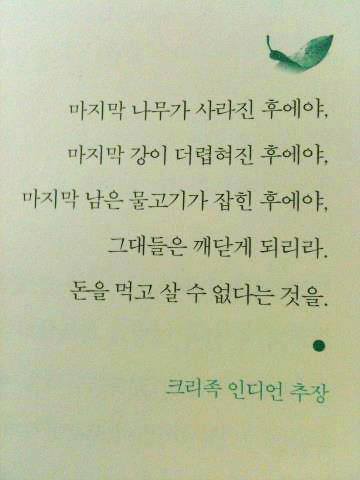 마지막 나무가 사라진 후에야,
마지막 강이 더렵혀진 후에야,
마지막 남은 물고기가 잡힌 후에야,
그대들은 깨닫게 되리라.
돈을 먹고 살 수 없다는 것을.
크리족 인디언 추장